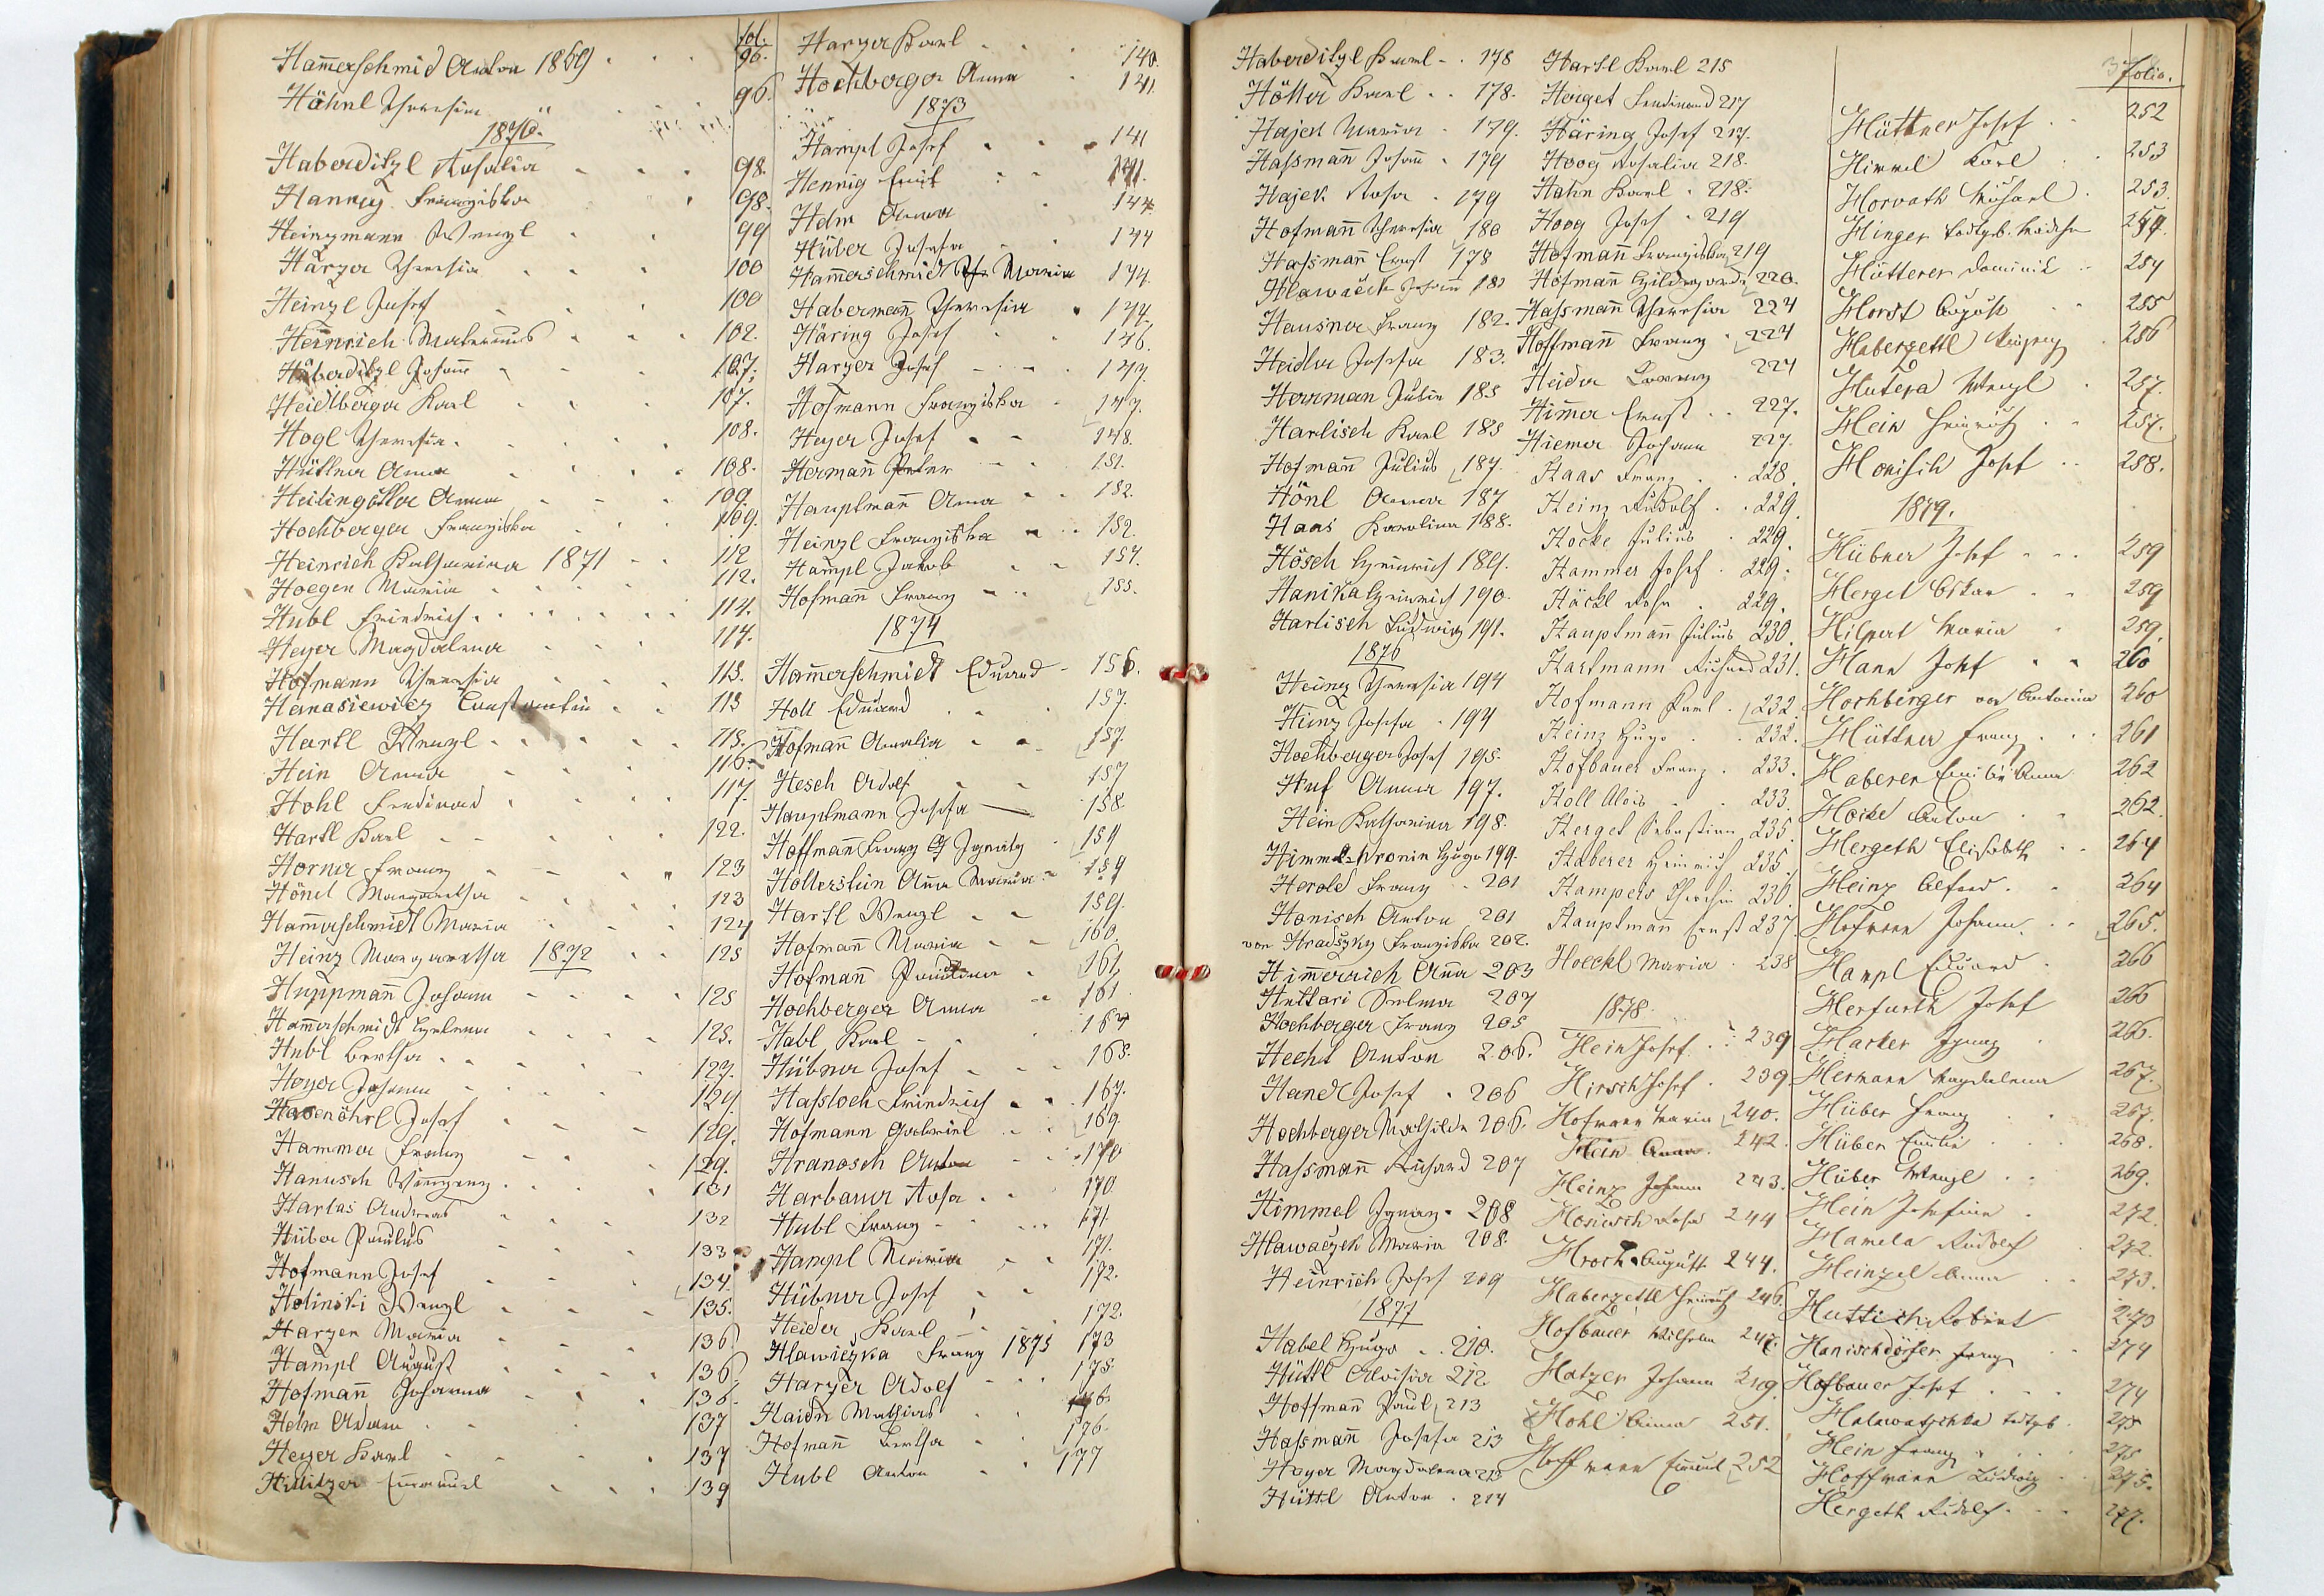 fol.
Ham̅erschmid Anton 1869 . . . 96.
Hähnl Theresia " . . . 96.
1870.
Haberditzl Rosalia . . . 98.
Hannig Franziska . 98.
Heinzmann Wenzl . . 99
Harzer Theresia . . . 100
Heinzl Josef . . . 100
Heinrich Maternus . . . 102.
Haberditzl Johann . . . 107.
Heidlberger Karl . . . 107.
Hogl Theresia . . . 108.
Hüttner Anna . . . 108.
Heilingötter Anna . . . 109.
Hochberger Franziska . . . 109.
Heinrich Katharina 1871 . . 112
Hoeger Maria . . . 112.
Hubl Friedrich . . . 114.
Heyer Magdalena . . . 114.
Hofmann Theresia . . . 115.
Constantin . . 115
Hartl Wenzl . . . 115.
Hein Anna . . . 116.
Hohl Ferdinand . . . 117.
Hartl Karl . . . 122.
Horner Franz . . . 123
Hönel Margaretha . . . 123
Ham̅erschmidt Maria . . . 124
Heinz Margaretha 1872 . . 125
Huppmañ Johann . . . 125
Ham̅erschmidt Helena . . . 125.
Hubl Bertha . . . 127.
Heyer Johann . . . 129.
Hasenöhrl Josef . . . 129.
Hammer Franz . . . 129.
Hanusch Vinzenz . . . 131
Hartas Andreas . . . 132
Huber Paulus . . . 133
Hofmann Josef . . . 134.
Holinski Wenzl . . . 135.
Harzer Maria . . . 136.
Hampl August . . . 136.
Hofmañ Johanna . . . 136.
Helm Adam . . . 137
Heyer Karl . . . 137
Emanuel . . . 139
Harzer Karl . . . 140.
Hochberger Anna . 141.
1873
Hampl Josef . . . 141
Hennig Emil . . 141.
Helm Anna . 144.
Huber Josefa . . 144
Ham̅erschmidt Maria 144.
Habermañ Theresia . 144.
Häring Josef . . 146.
Harzer Josef . . . 147.
Hofmann Franziska . 147.
Heyer Josef . . 148.
Hermañ Peter . . 151.
Hauptmañ Anna . . 152.
Heinzl Franziska . . 152.
Hampl Jakob . . 154.
Hofmañ Franz . . 155.
1874
Ham̅erschmidt Eduard . 156.
Holl Eduard . . . 157.
Hofmañ Amalia . . 157.
Hesch Adolf . . 157
Hauptmann Josefa — 158.
Hoffmañ Franz Ignatz . 159
Hollerstein Anna Maria . 159
Hartl Wenzl . . 159.
Hofmañ Maria . . 160.
Hofmañ Paulina . 161.
Hochberger Anna . 161
Habl Karl . . 164
Hübner Josef . . . 165.
Haßloch Friedrich . . 167.
Hofmann Gabriel . . 169.
Hranosch Anton . . 170
Harbauer Rosa . . 170.
Hubl Franz . . . 171.
Hampl Maria . . 171.
Hübner Josef . . 172.
Heider Karl . . 172.
Hlawiczka Franz 1875 173
Harzer Adolf . . . 175.
Haidn Mathias . . 176.
Hofmañ Bertha . . 176.
Hubl Anton . . 177
Haberditzl Karl . . 178
Höller Karl . . 178.
Hajek Maria . 179.
Haßmañ Johañ . 179
Hajek Rosa . 179
Hofmañ Theresia 180
Haßmañ Ernst 178
Hlawaček Johann 180
Hausner Franz 182.
Heidler Josefa 183.
Herrman Julie 185
Harlisch Karl 185
Hofmañ Julius 187.
Hönl Anna 187
Haas Karolina 188.
Hösch Heinrich 189.
Hanika Heinrich 190.
Harlisch Ludwig 191.
1876
Heinz Theresia 194
Heinz Josefa . 194
Hochberger Josef 195.
Huf Anna 197.
Hein Katharina 198.
Himmel-Kronin Hugo 199.
Herold Franz . 201
Hanisch Anton 201
von Hradszky Franziska 202.
Him̅erreich Anna 203
Huttari Selma 204
Hochberger Franz 205
Hecht Anton 206.
Handl Josef . 206
Hochberger Mathilde 206.
Haßmañ Richard 207
Himmel Ignaz . 208
Hlawaczek Maria 208.
Heinrich Josef 209
1877
Habel Hugo . . 210.
Hüttl Aloisia 212
Hoffmañ Paul 213
Haßmañ Josefa 213
Heyer Magdalena 213
Hüttl Anton . 214
Hartl Karl 215
Herget Ferdinand 217
Häring Josef 217.
Hoog Rosalia 218.
Hahn Karl . 218.
Hoog Josef . 219
Hofmañ Franziska 219
Hofmañ Hildegarde 220.
Haßmañ Theresia 224
Hoffmañ Franz . 224
Heider Lorenz 224
Him̅er Ernst . . 227.
Hiemer Johann 227.
Haas Franz . . 228.
Heinz Rudolf . . 229.
Hocke Julius . 229.
Hammer Josef . 229.
Häckl Rosa . 229.
Hauptmañ Julius 230.
Hartmann Richard 231.
Hofmann Karl . 232.
Heinz Hugo . . 232.
Hofbauer Franz . 233.
Holl Alois . . 233.
Herget Sebastian 235.
Haberer Heinrich 235.
Hampels Theresia 236.
Hauptmañ Ernst 237.
Hoeckl Maria . 238
1878.
Hein Josef . . 239
Hirsch Josef . 239
Hofmann Maria 240.
Hein Anna . 242.
Heinz Johann 243.
Rosa 244
Hroch August 244.
Haberzettl Heinrich 246.
Hofbauer Wilhelm 247.
Hatzer Johann 249.
Hohl Anna 251.
Hoffmann Emanuel 252
Folio.
Hüttner Josef . . 252
Himmel Karl . . 253
Horvath Michael . 253.
Hinger todtgeb. Mädchen 254.
Hütterer Dominik . . 254
Horst August . . 255
Haberzettl . 256
Hutera Wenzl . 257.
Hein Heinrich . . 257.
Honisch Josef . . 258.
1879.
Hübner Josef . . . 259
Herget Oskar . . 259
Hilpert Maria . 259.
Hann Josef . . 260
Hochberger von Antonia 260
Hüttner Franz . . . 261
Haberer Emilie Anna 262
Hocke Anton . . 262.
Hergeth Elisabeth . . 264
Heinz Alfred . . 264
Hofmann Johann . . 265.
Hampl Eduard . 266
Herfurth Josef 266
Harker Ignaz . 266.
Hermann Magdalena 267.
Huber Franz . . 267.
Huber Emilie . . . 268.
Huber Wenzl . . 269.
Hein Josefine . 272.
Hamela Rudolf . 272.
Heinzel Anna . . 273.
Huttich Robert 273
Hanischdörfer Franz . . 274
Hofbauer Josef . . . 274
Halawatschka todtgeb. 275
Hein Franz . . . 275
Hoffmann Ludwig . . 275.
Hergeth Rudolf . . . 277.